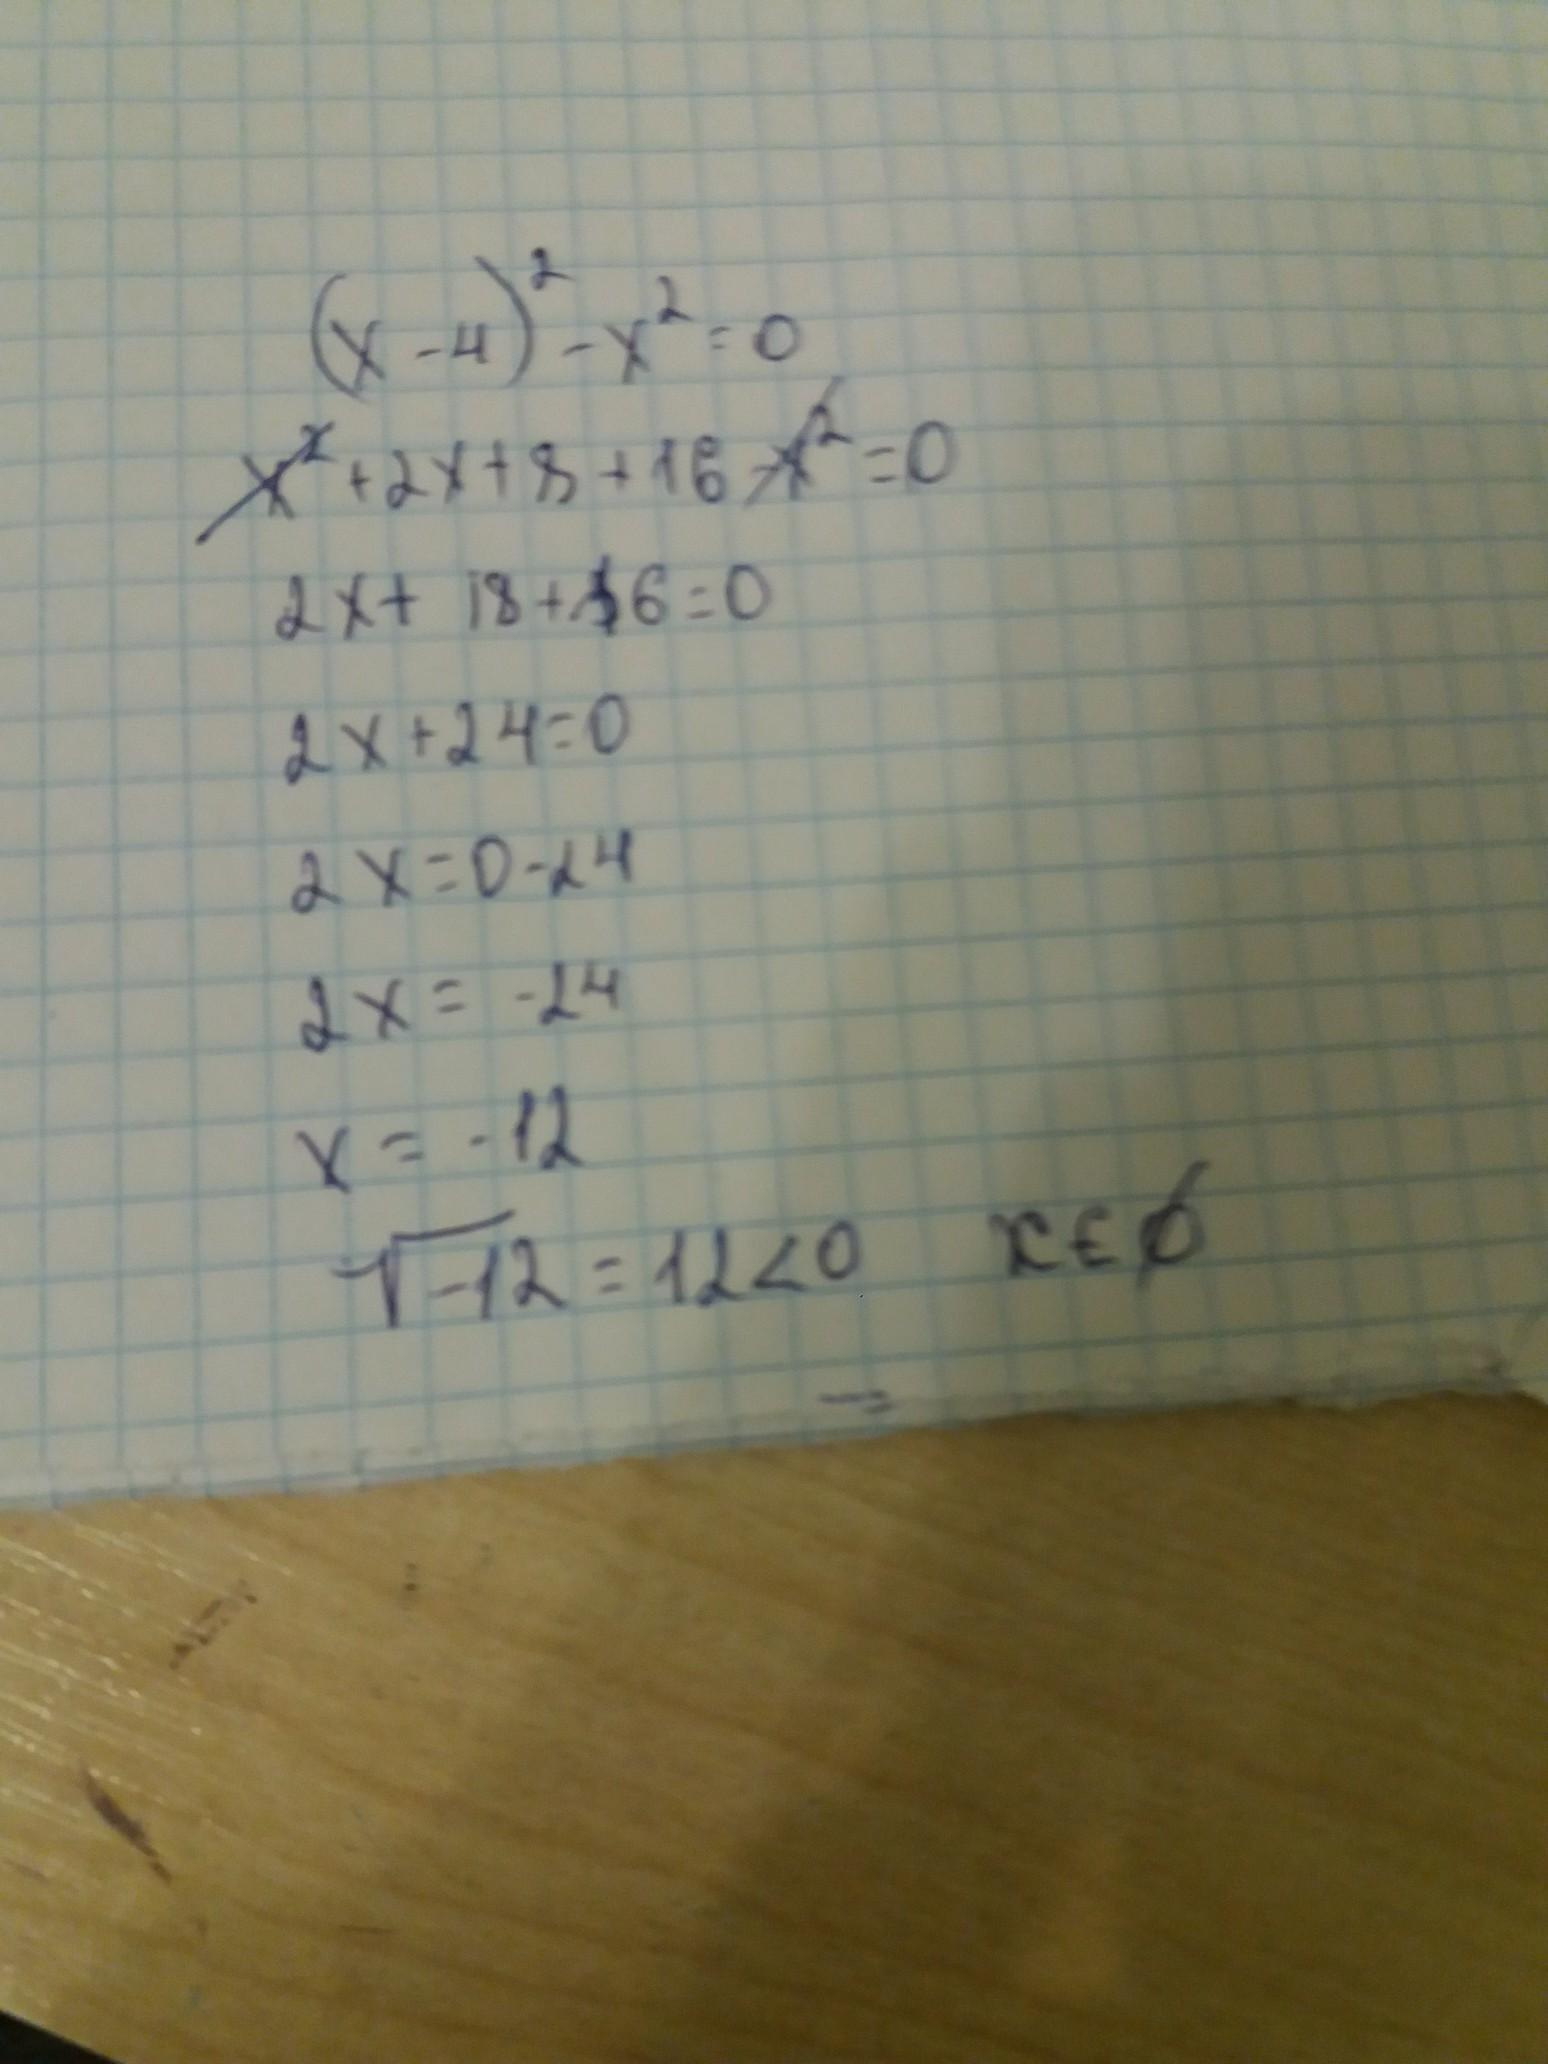 (x-4)² - x² = 0
x² + 2x + 8 + 16 - x² = 0
2x + 18 + 16 = 0
2x + 24 = 0
2x = 0 - 24
2x = -24
x = -12
√-12 = 12 < 0 x ∈ ∅